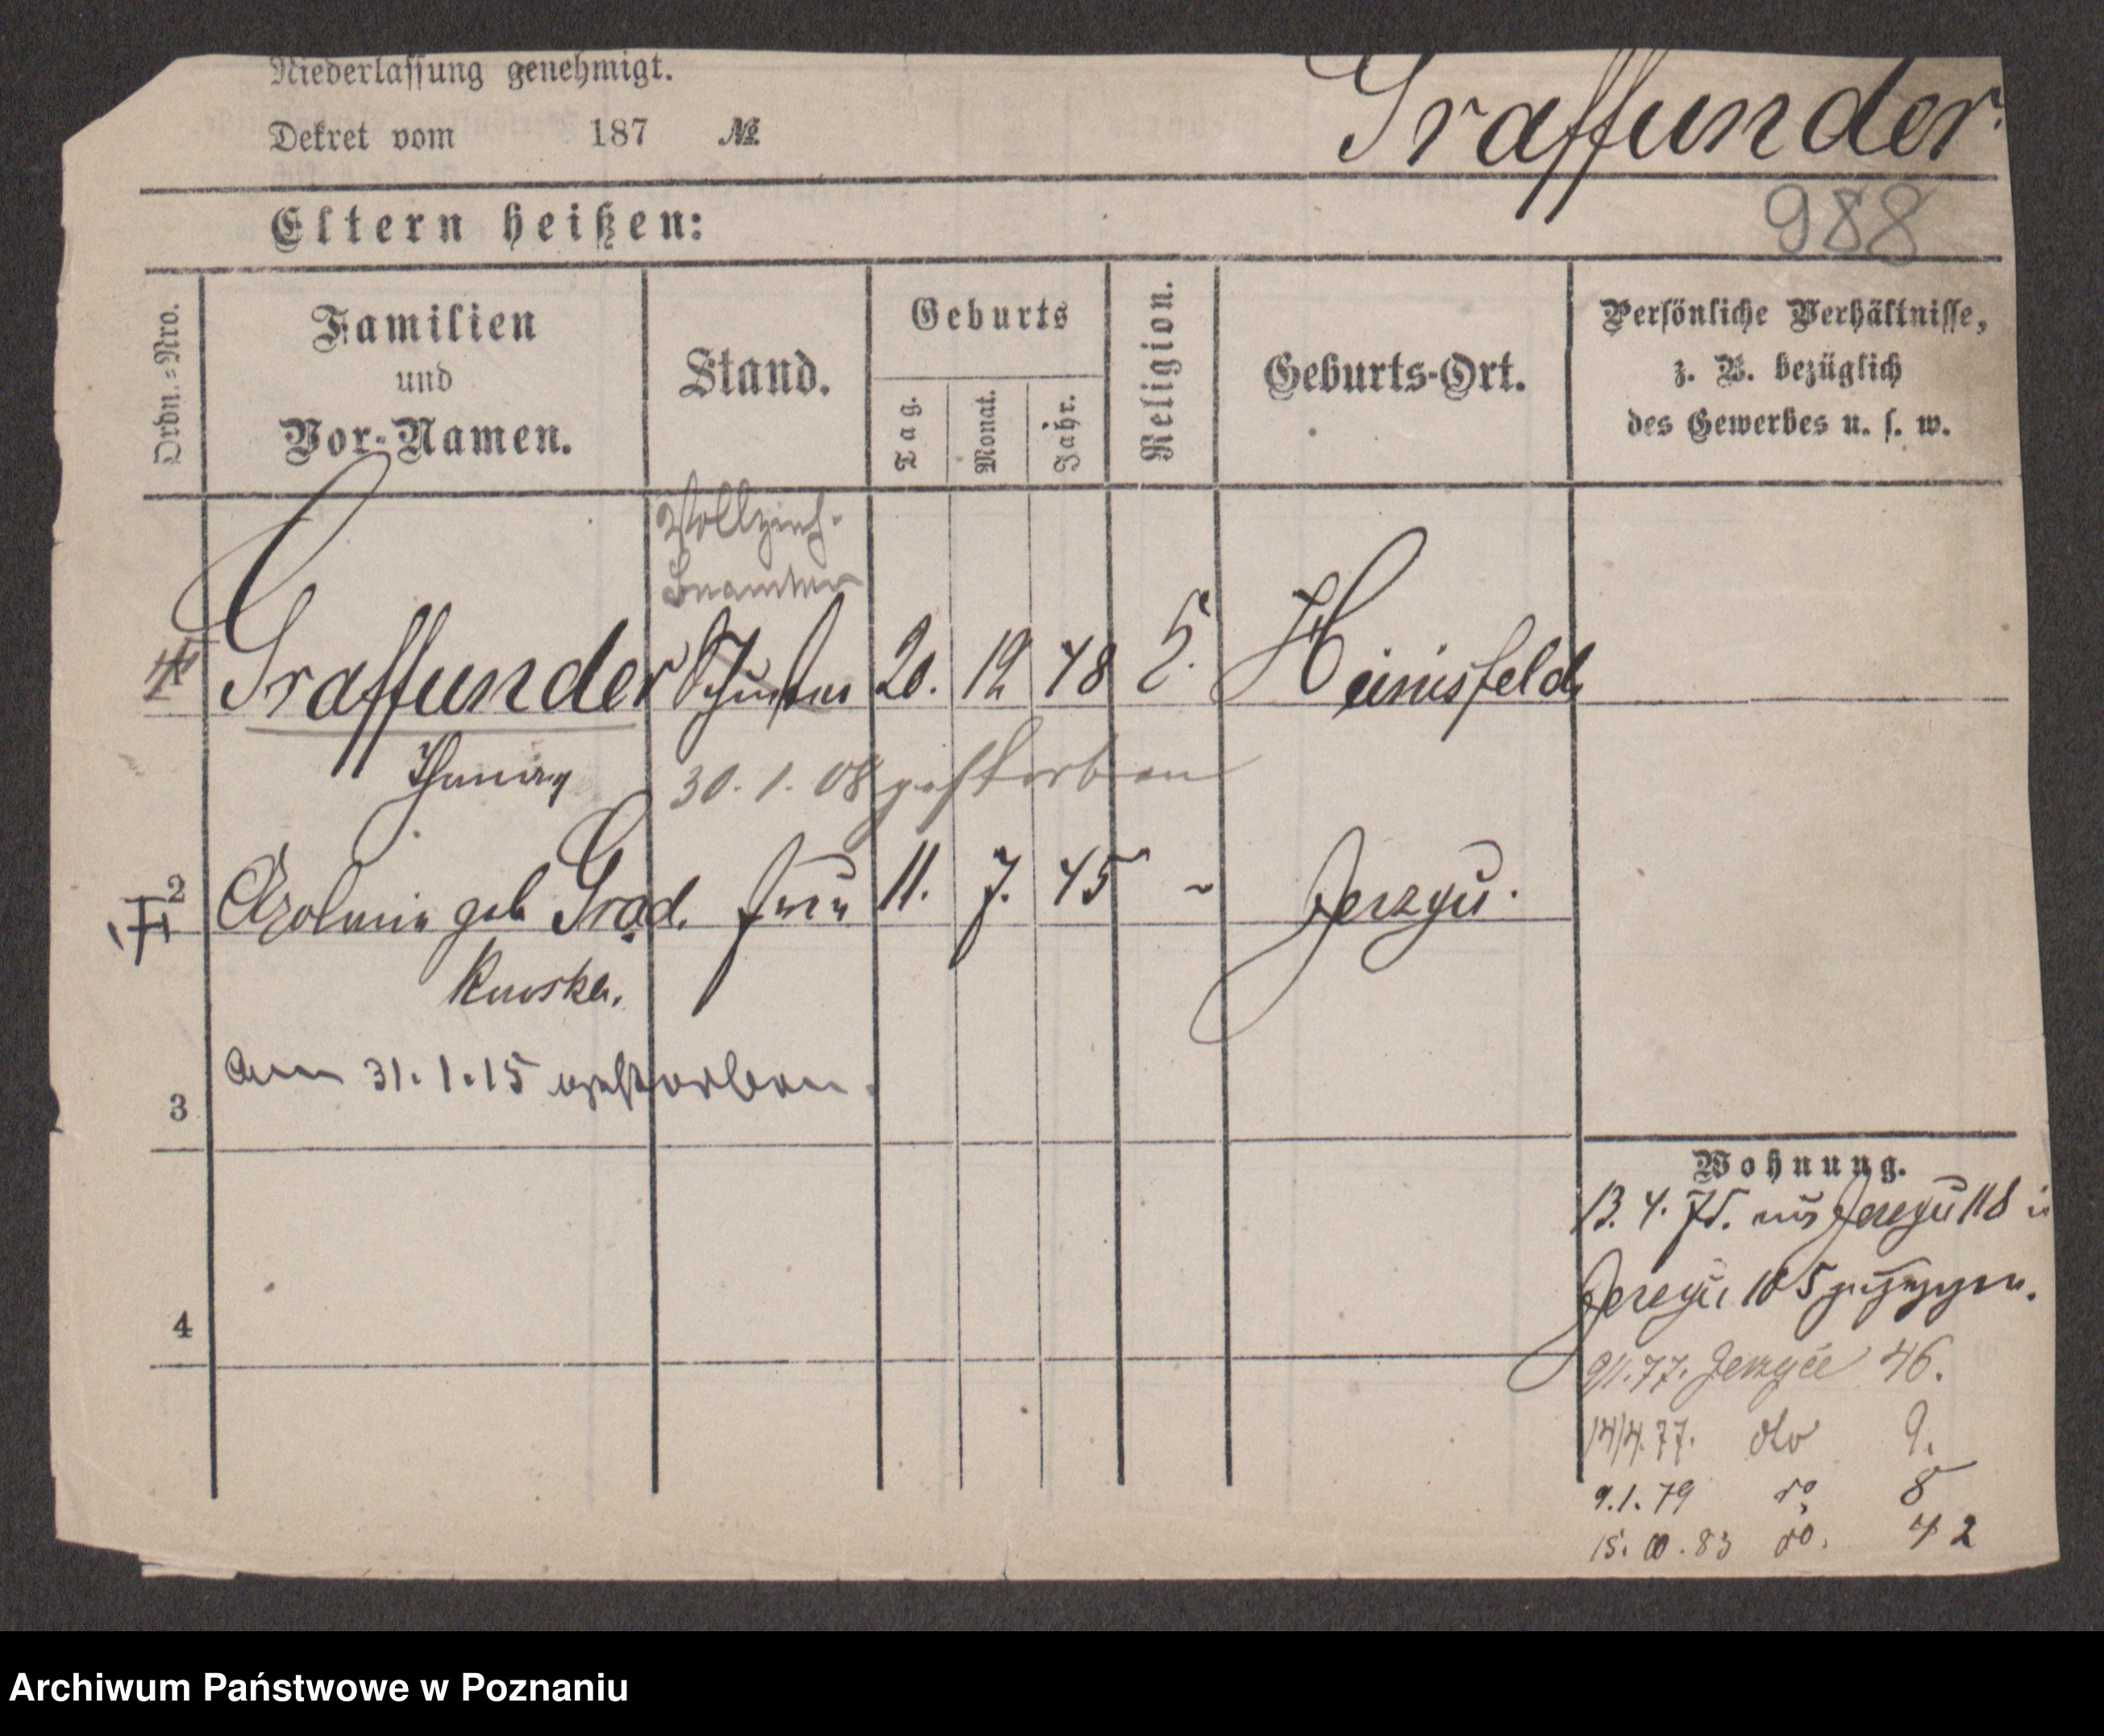 Niederlassung genehmigt.
Dekret vom 187 №
Graffunder.
Eltern heißen:
988
Ordn.-Nro.
Familien
und
Vor-Namen.
Stand.
Geburts
Tag.
Monat.
Jahr.
Religion.
Geburts-Ort.
Persönliche Verhältnisse,
z. B. bezüglich
des Gewerbes u. s. w.
Vollzieh.
Beamter
Graffunder 20. 12 48 Heinisfeld
30. 1. 08 gestorben
2 geb Grod. Frau 11. 7. 45 Jerzyce.
am 31.1.15 gestorben.
3
4
Wohnung.
13. 4. 75. aus Jerzyce 118 in
Jerzyce 105 zugezogen.
9/1.77. Jerzyce 46.
14/4.77. dto 9.
9.1.79 do 8
15. 10. 83 do. 42
Archiwum Państwowe w Poznaniu